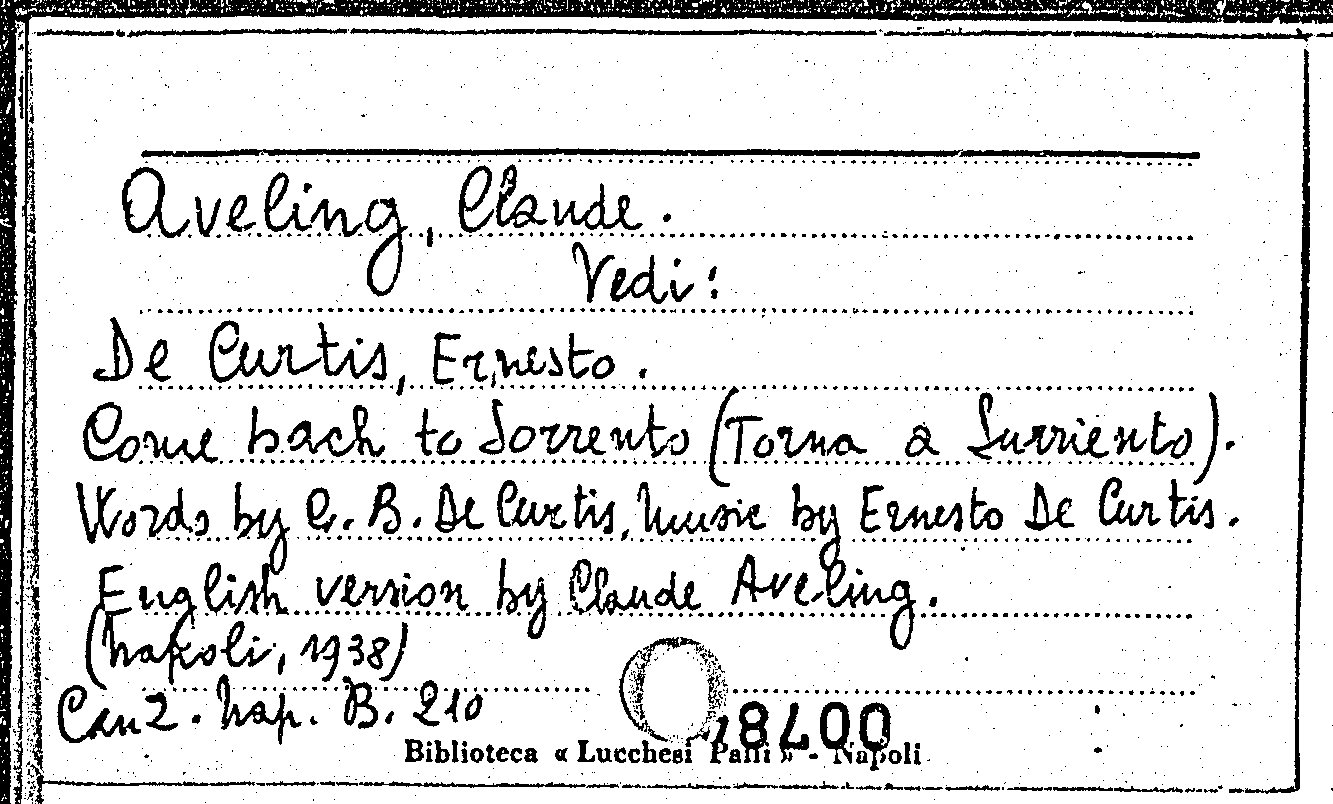 Aveling, Claude.
Vedi:
De Curtis, Ernesto.
Come bach to Sorrento (Torna a Surriento).
Words by G. B. De Curtis, music by Ernesto De Curtis.
English version by Claude Aveling.
(Napoli, 1938)
Canz. Nap. B. 210
Biblioteca « Lucchesi Palli » - Napoli